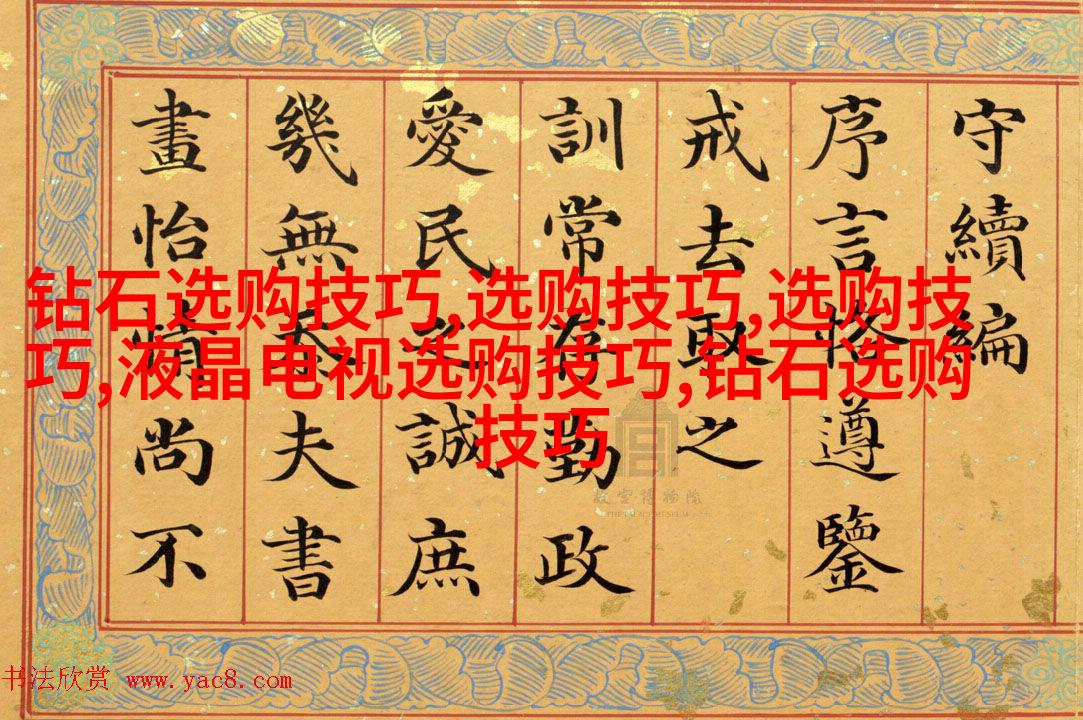 守續編
序言恪遵鑒
戒去取之
訓常為勤政
愛民之誠庶
幾無忝夫書
畫怡情尚不
钻石选购技巧,选购技巧,选购技
巧,液晶电视选购技巧,钻石选购
技巧
故宫博物院
THE PALACE MUSEUM
书法欣赏 www.yac8.com